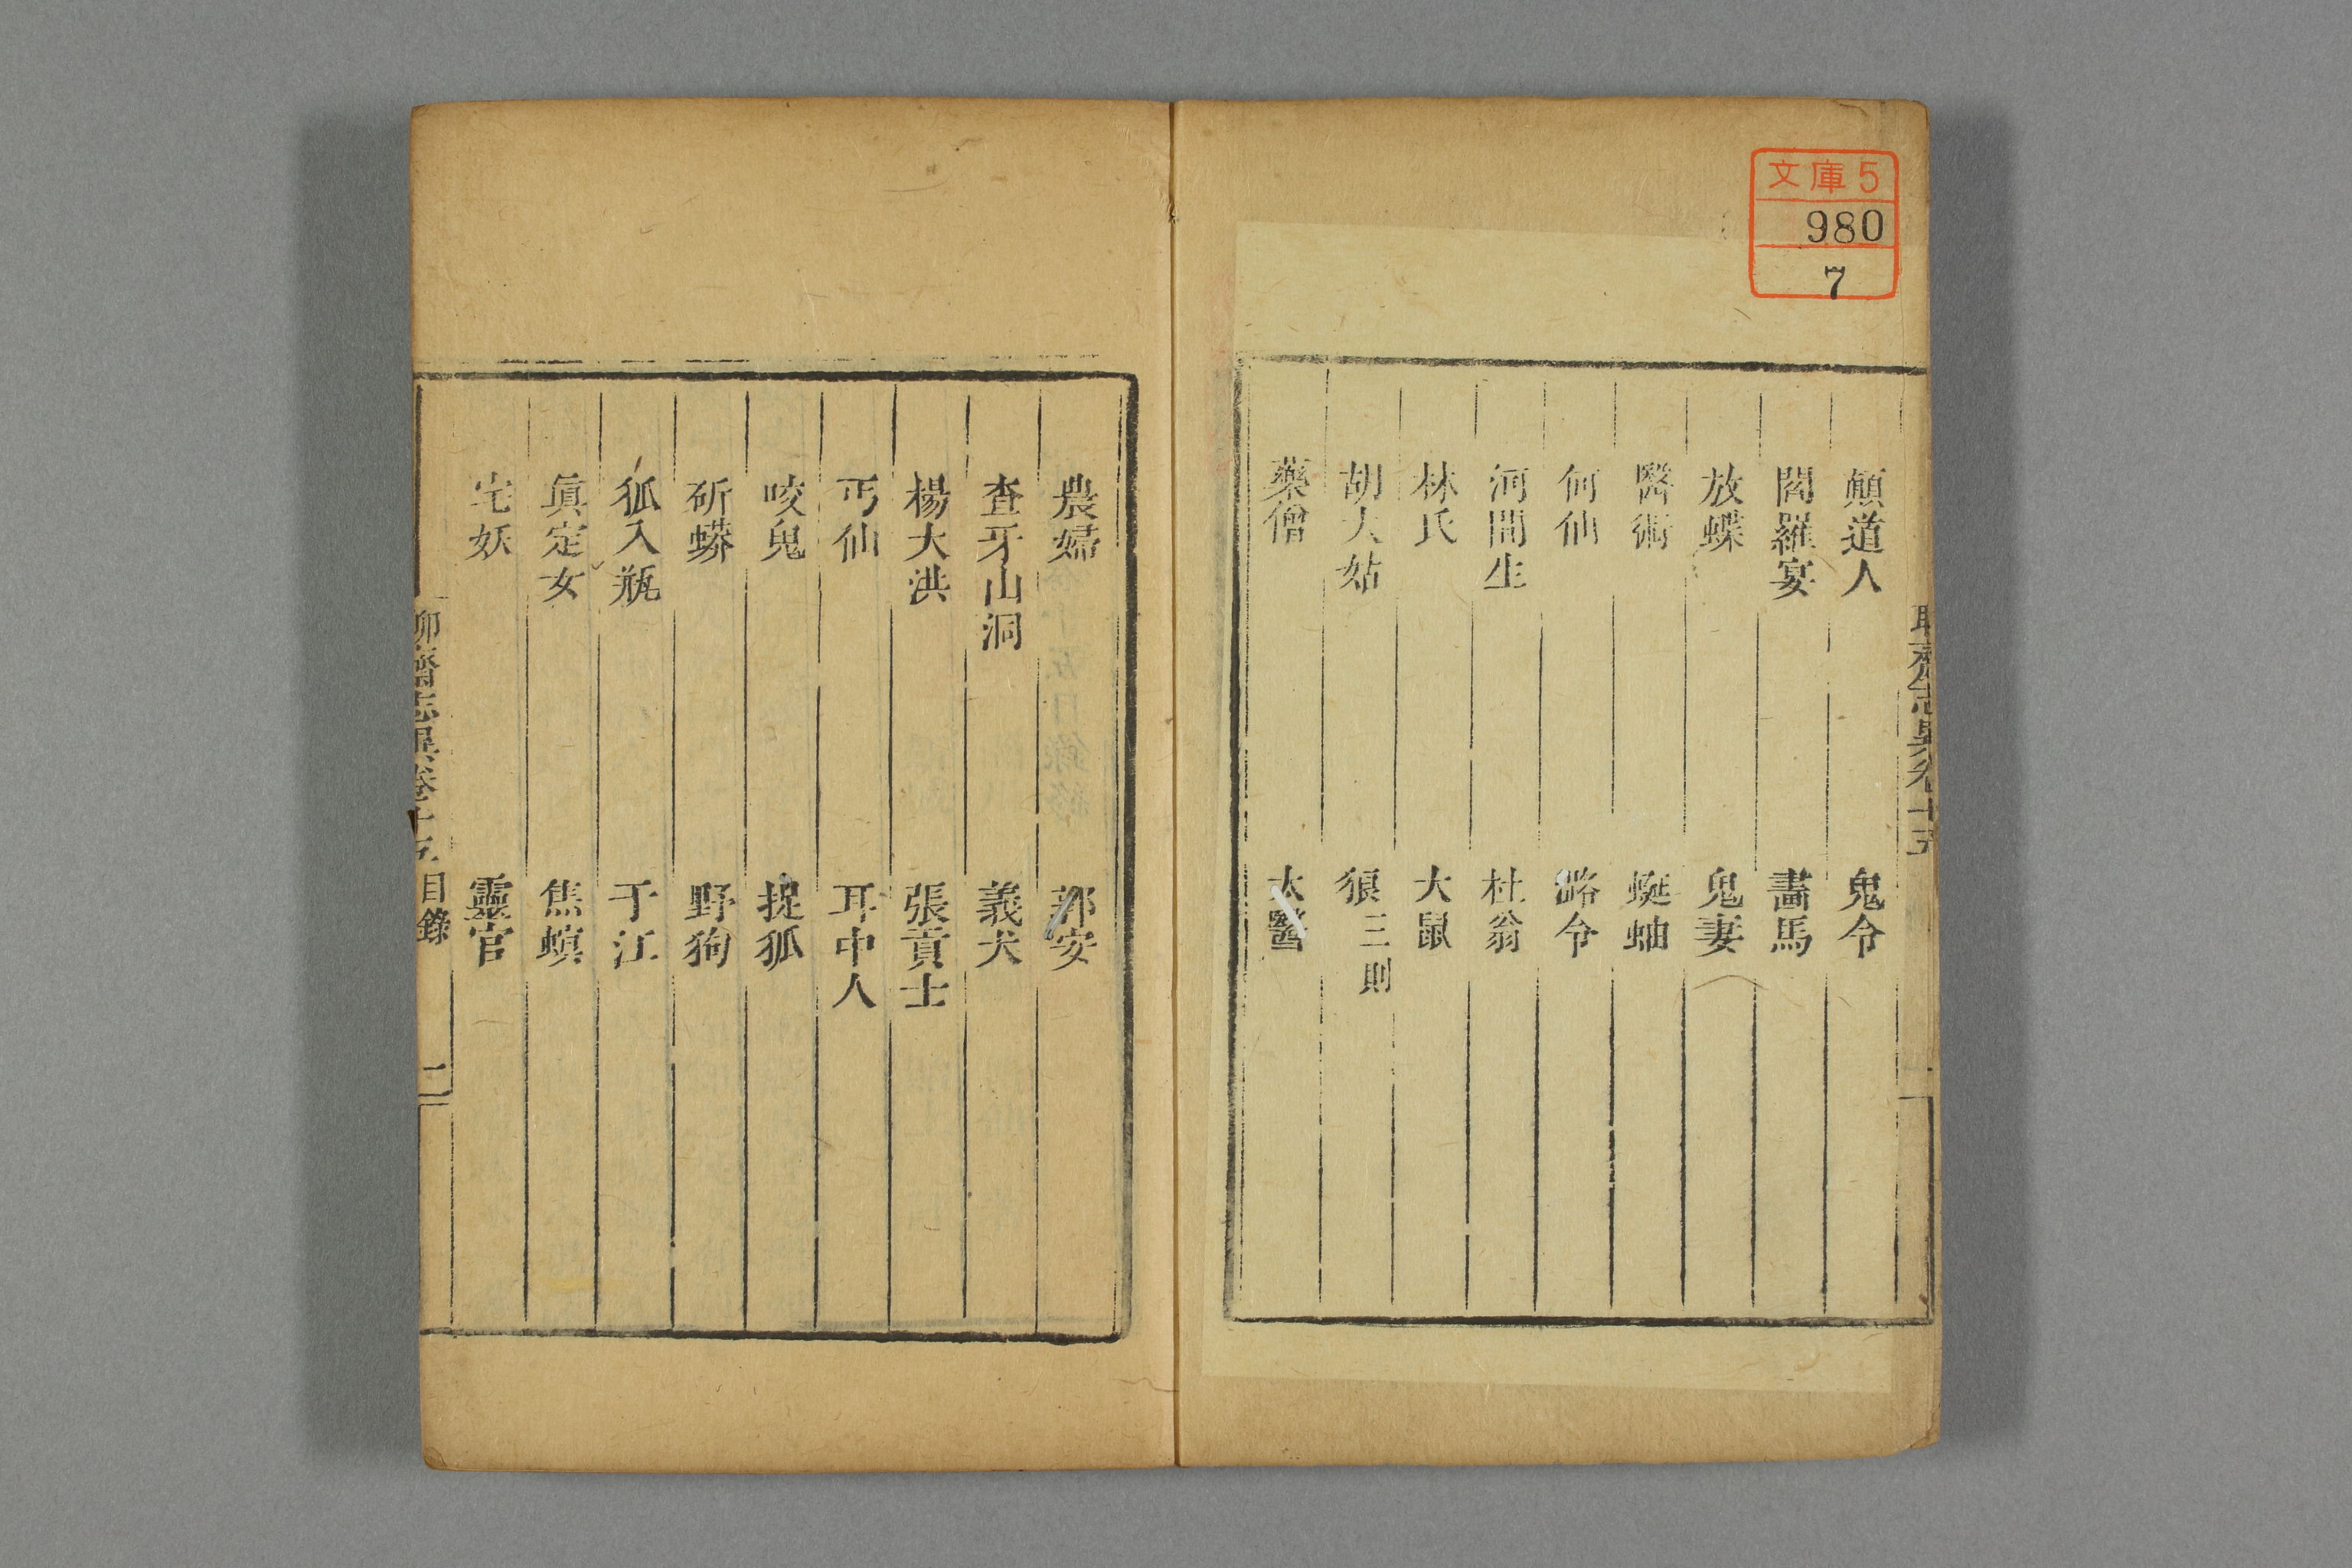 文庫5
980
7
聊齋志異卷十五
顛道人
鬼令
閻羅宴
畵馬
放蝶
鬼妻
醫術
蜒蚰
何仙
潞令
河間生
杜翁
林氏
大鼠
胡大姑
狼三則
藥僧
太醫
農婦
郭安
查牙山洞
義犬
楊大洪
張貢士
丐仙
耳中人
咬鬼
捉狐
斫蟒
野狗
狐入瓶
于江
眞定女
焦螟
宅妖
靈官
聊齋志異卷十五 目錄 二